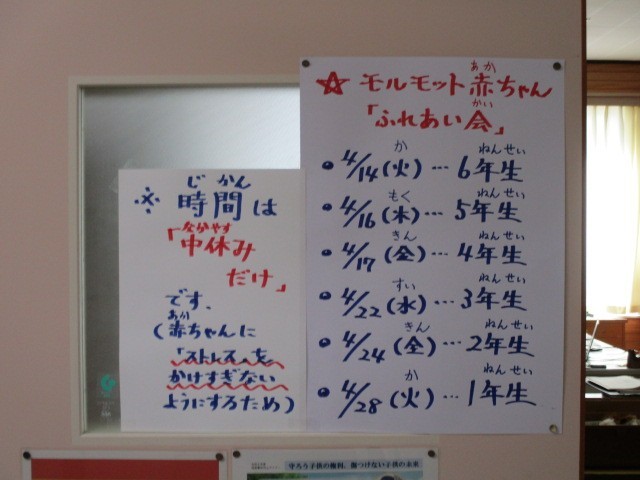 あか
☆ モルモット赤ちゃん
かい
「ふれあい会」
か ねんせい
• 4/14(火)… 6年生
もく ねんせい
• 4/16(木)… 5年生
きん ねんせい
• 4/17(金)… 4年生
すい ねんせい
• 4/22(水)… 3年生
きん ねんせい
• 4/24(金)… 2年生
か ねんせい
• 4/28(火)… 1年生
じ かん
※ 時間は
なかやす
「中休み
だけ」
です.
あか
(赤ちゃんに
「ストレス」を
かけすぎない
ようにするため)
守ろう子供の権利、傷つけない子供の未来